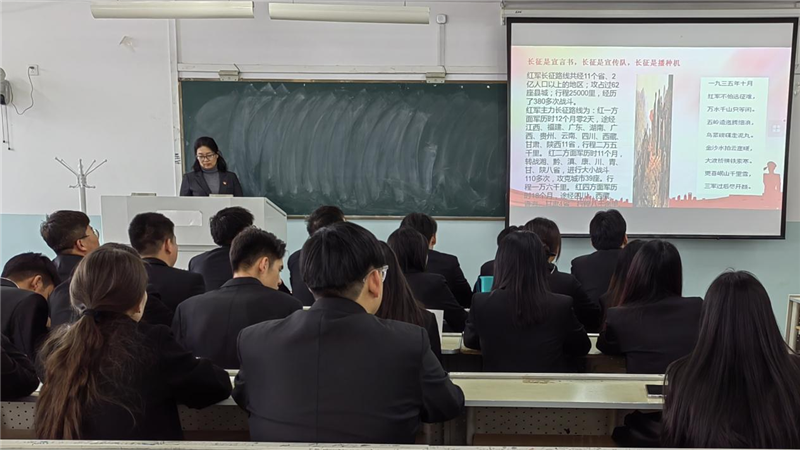 长征是宣言书，长征是宣传队，长征是播种机
红军长征路线共经11个省、2
亿人口以上的地区；攻占过62
座县城；行程25000里，经历
了380多次战斗。
红军主力长征路线为：红一方
面军历时12个月零2天，途经
江西、福建、广东、湖南、广
西、贵州、云南、四川、西藏、
甘肃、陕西11省，行程二万五
千里。红二方面军历时11个月，
转战湘、黔、滇、康、川、青、
甘、陕八省，进行大小战斗
110多次，攻克城市39座。行
程一万六千里。红四方面军历
时18个月，途经四川、西藏、
一九三五年十月
红军不怕远征难，
万水千山只等闲。
五岭逶迤腾细浪，
乌蒙磅礴走泥丸。
金沙水拍云崖暖，
大渡桥横铁索寒。
更喜岷山千里雪，
三军过后尽开颜。